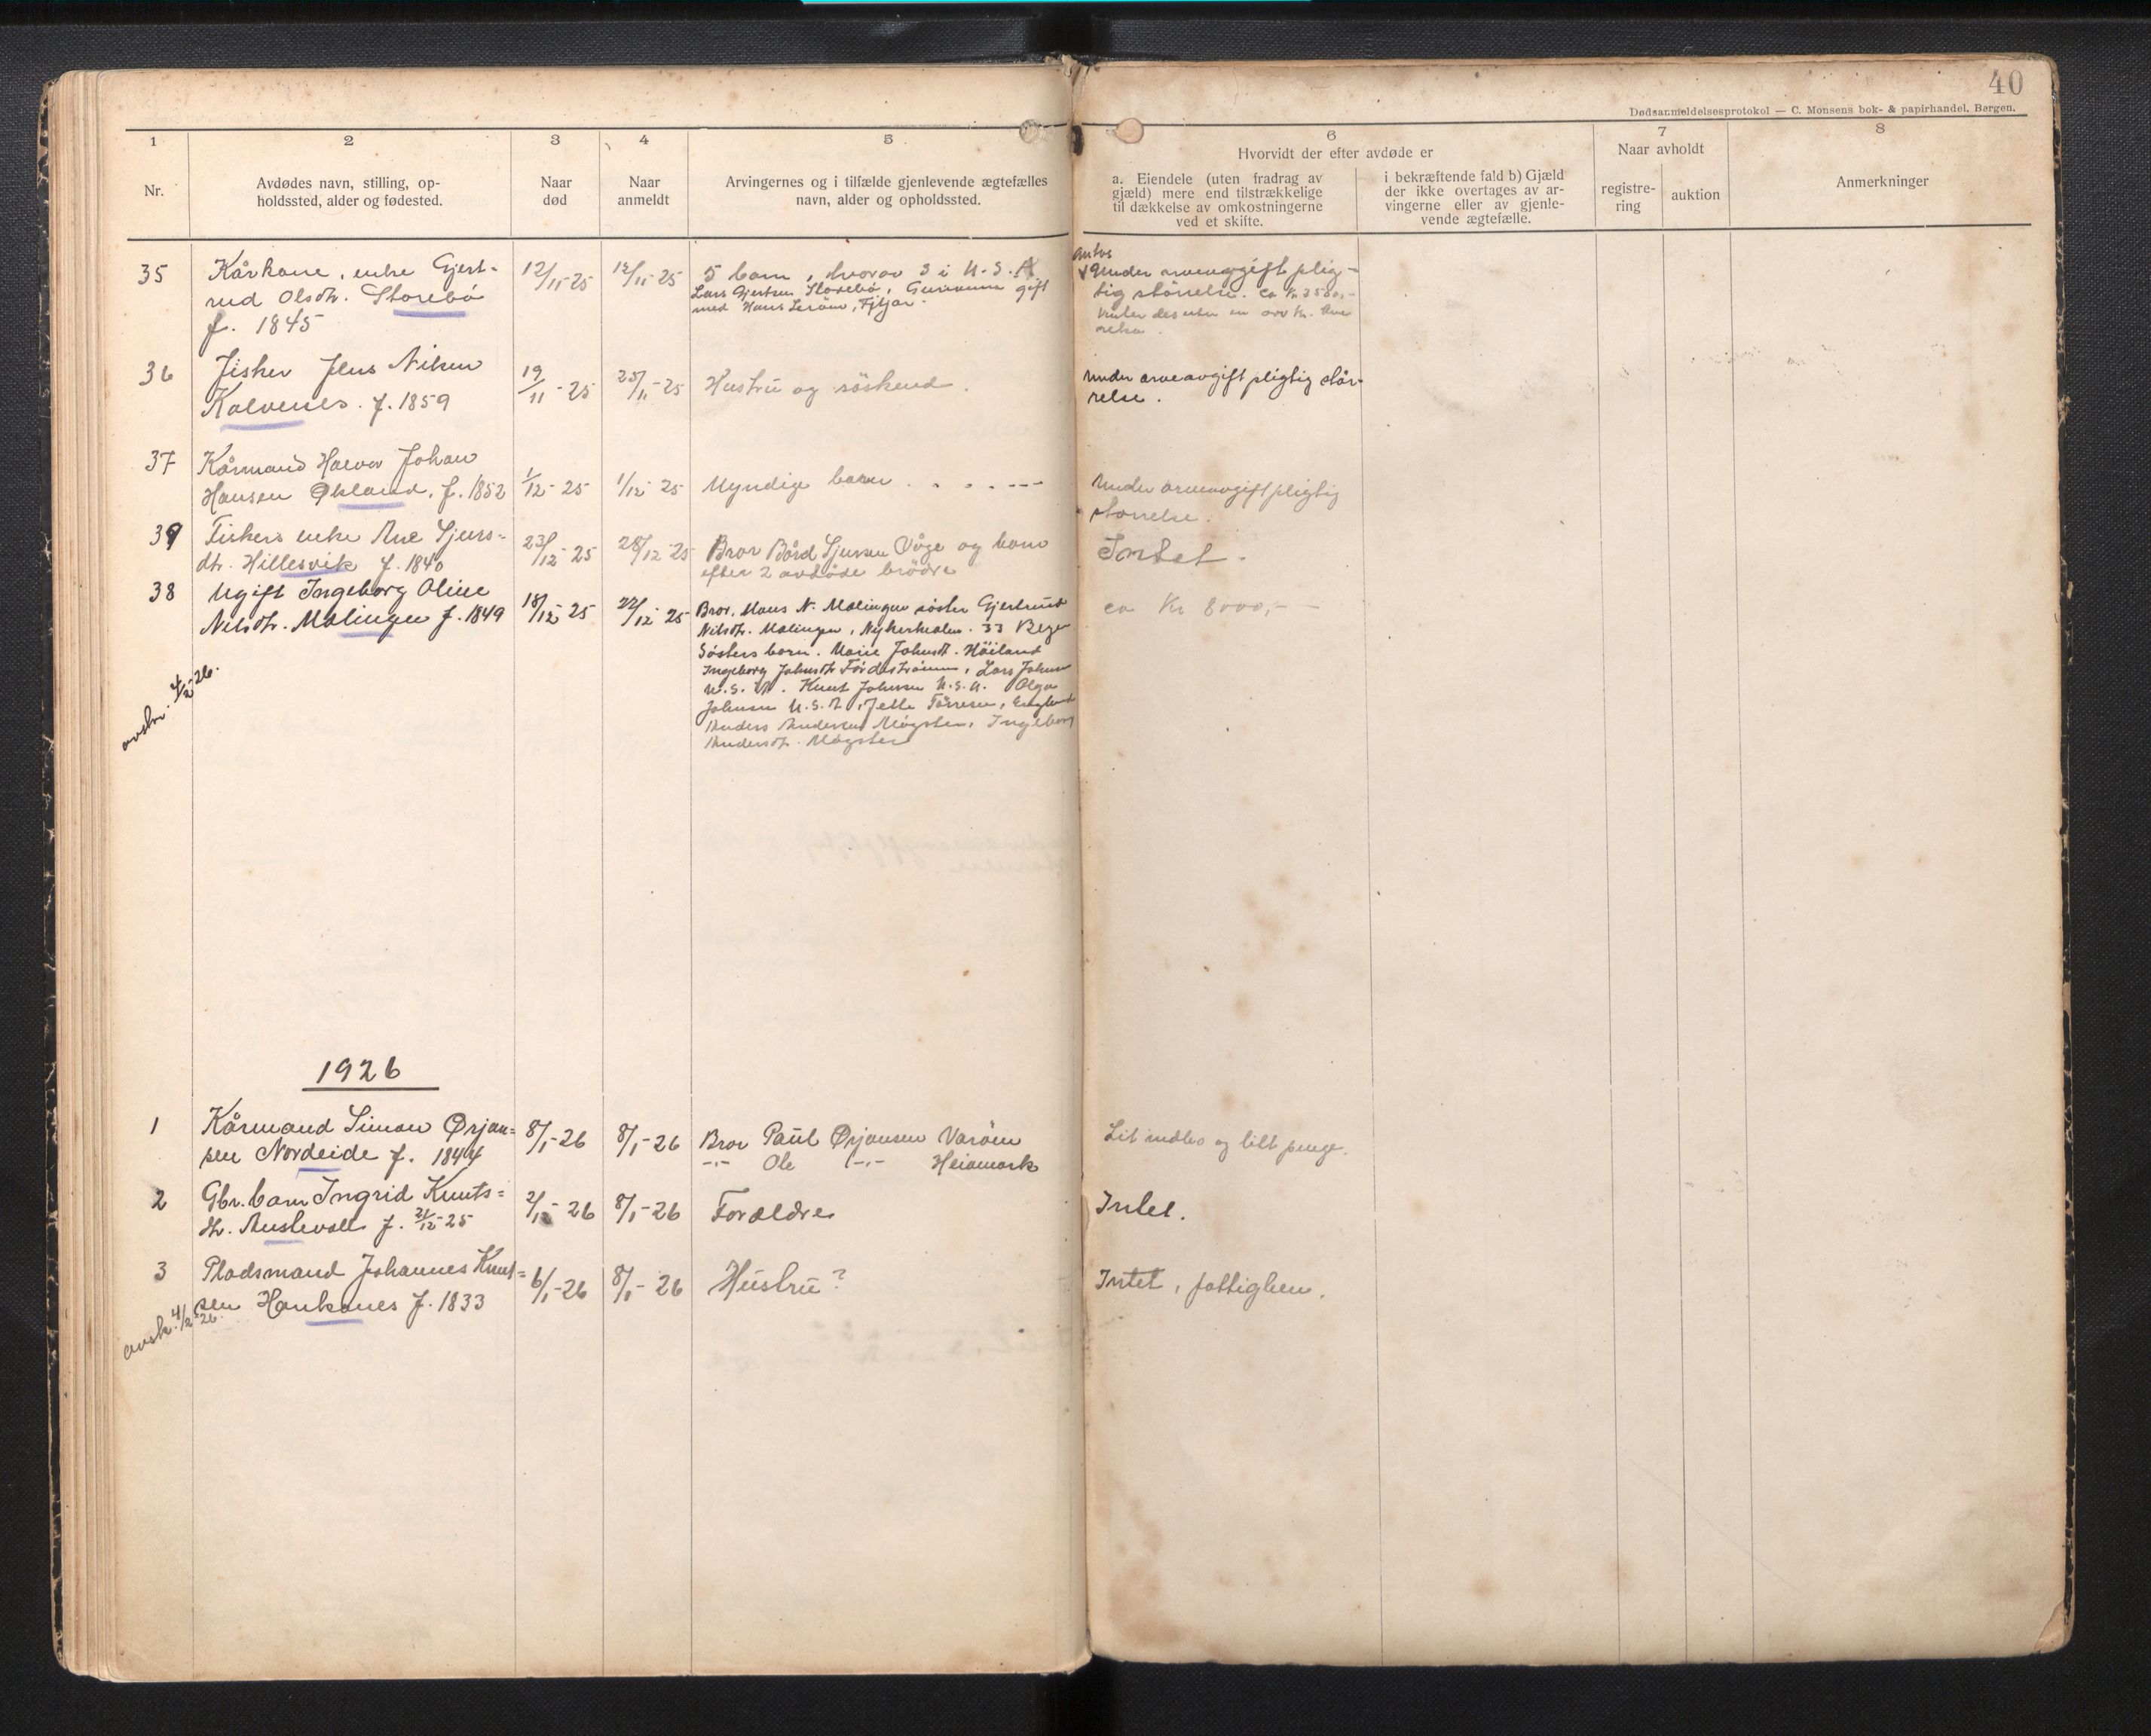 40
Dødsanmeldelsesprotokol — C. Monsens bok- & papirhandel, Bergen.
1
2
3
4
5
6
7
8
Nr.
Avdødes navn, stilling, op-
holdssted, alder og fødested.
Naar
død
Naar
anmeldt
Arvingernes og i tilfælde gjenlevende ægtefælles
navn, alder og opholdssted.
Hvorvidt der efter avdøde er
a. Eiendele (uten fradrag av
gjæld) mere end tilstrækkelige
til dækkelse av omkostningerne
ved et skifte.
i bekræftende fald b) Gjæld
der ikke overtages av ar-
vingerne eller av gjenle-
vende ægtefælle.
Naar avholdt
registre-
ring
auktion
Anmerkninger
35
Kårkone, enke Gjert-
rud Olsdtr. Storebö
f. 1845
12/11-25
12/11-25
5 barn, hvorav 3 i U.S.A
Lars Gjertsen Storebö, gift
med Hans, Fitjar
Under arveavgift plig-
tig störrelse. ca Kr 3500,-
36
Fisker Jens Nilsen
Kalvenes. f. 1859
19/11-25
25/11-25
Hustru og söskend.
Under arveavgift pligtig stör-
relse.
37
Kårmand Halvor Johan
Hansen Økland, f. 1852
1/12-25
1/12-25
Myndige barn . . . . ---
Under arveavgift pligtig
störrelse.
39
Fiskers enke Ane Sjurs-
dtr. Hillesvik f. 1840
23/12-25
28/12-25
Bror Bård Sjursen Våge og barn
efter 2 avdöde brödre
Intet.
38
Ugift Ingeborg Oline
Nilsdtr. Malingen f. 1849
18/12-25
22/12-25
Bror. Hans N. Malingen söster Gjertrud
Nilsdtr. Malingen, Nykirkealm. 33 Bergen
Sösters barn. Marie Johnsdt. Höiland
Ingeborg Johnsdtr Fördestrommen, Lars Johnsen
U.S.A. Knut Johnsen U.S.A. Olga
Johnsen U.S.A, Jette Törresen, England
Anders Andersen Mögster, Ingeborg
Andersdtr. Mögster
ca Kr 8000,-
avskr. 4/2-26.
1926
1
Kårmand Simon Ørjan=
sen Nordeide f. 1844
8/1-26
8/1-26
Bror Paul Ørjansen Varöen
-"- Ole -"- Heiamark
Lit indbo og litt penge.
2
Gbr. barn Ingrid Knuts=
dtr. Austevoll f. 21/12-25
2/1-26
8/1-26
Forældre
Intet.
3
Pladsmand Johannes Knut=
sen Haukanes f. 1833
6/1-26
8/1-26
Hustru?
Intet, fattiglem.
avsk. 4/2-26.